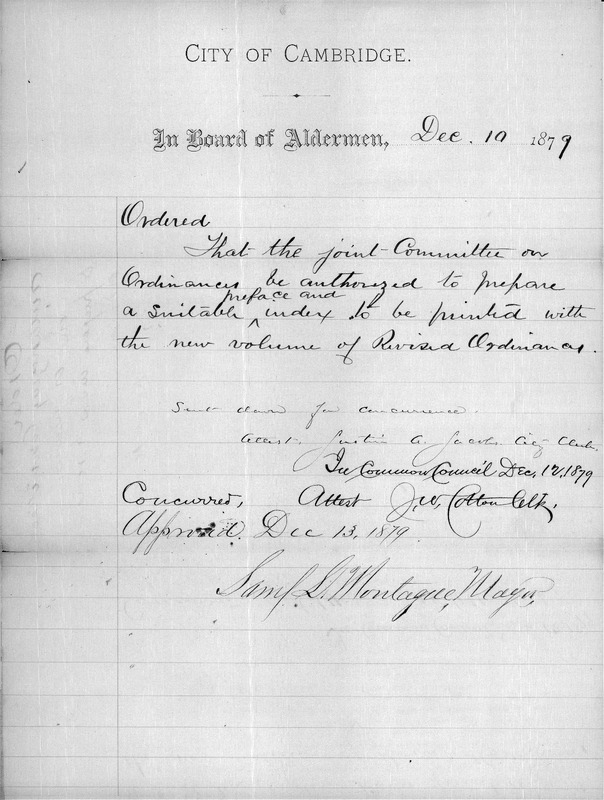 CITY OF CAMBRIDGE.
In Board of Aldermen, Dec. 10 1879
Ordered
That the joint Committee on
Ordinances be authorized to prepare
preface and
a suitable ^ index to be printed with
the new volume of Revised Ordinances.
Sent down for concurrence.
Attest. Justin A. Jacobs City Clerk.
In Common Council Dec. 12, 1879
Concurred, Attest J. W. Cotton Clk.
Approved. Dec 13, 1879
Saml L. Montague, Mayor,